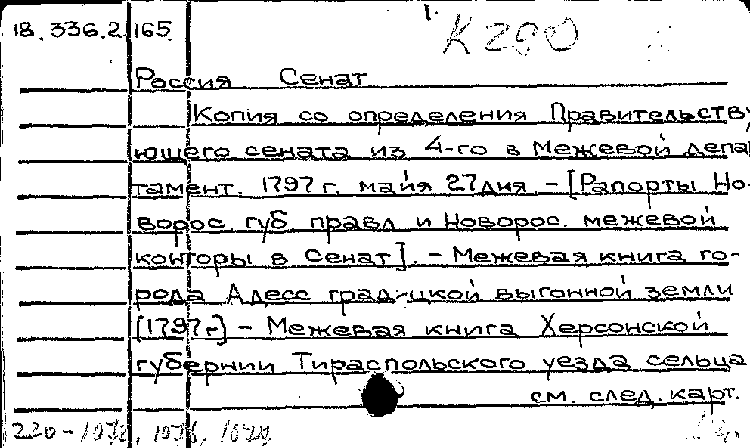 1.
18.336.2 165. К 280
Россия Сенат
Копия со определения Правительству
ющего сената из 4-го в Межевой депар
тамент. 1797 г. майя 27 дня. – [Рапорты Но-
ворос. губ. правл и Новорос. межевой
конторы в Сенат]. – Межевая книга го-
рода Адесс град-цкой выгонной земли
[1797 г.] – Межевая книга Херсонской
губернии Тираспольского уезда сельца
см. след. карт.